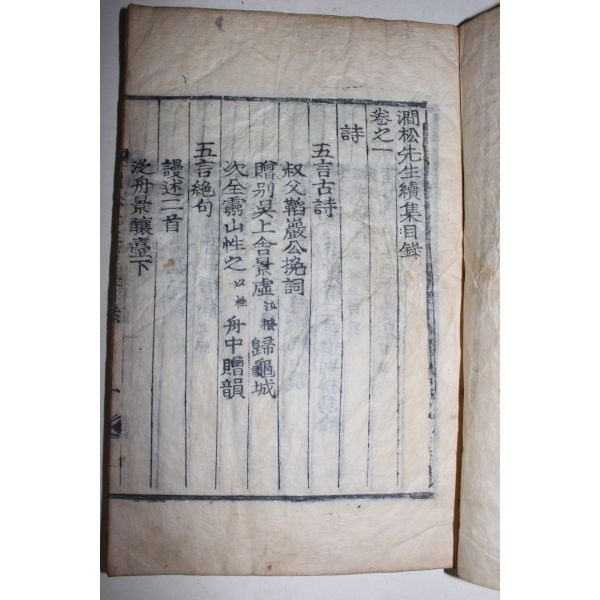 澗松先生續集目錄
卷之一
詩
五言古詩
叔父韜巖公挽詞
贈別吳上舍景虛 汝橃 歸龜城
次全霽山性之 以性 舟中贈韻
五言絶句
謾述二首
泛舟景釀臺下